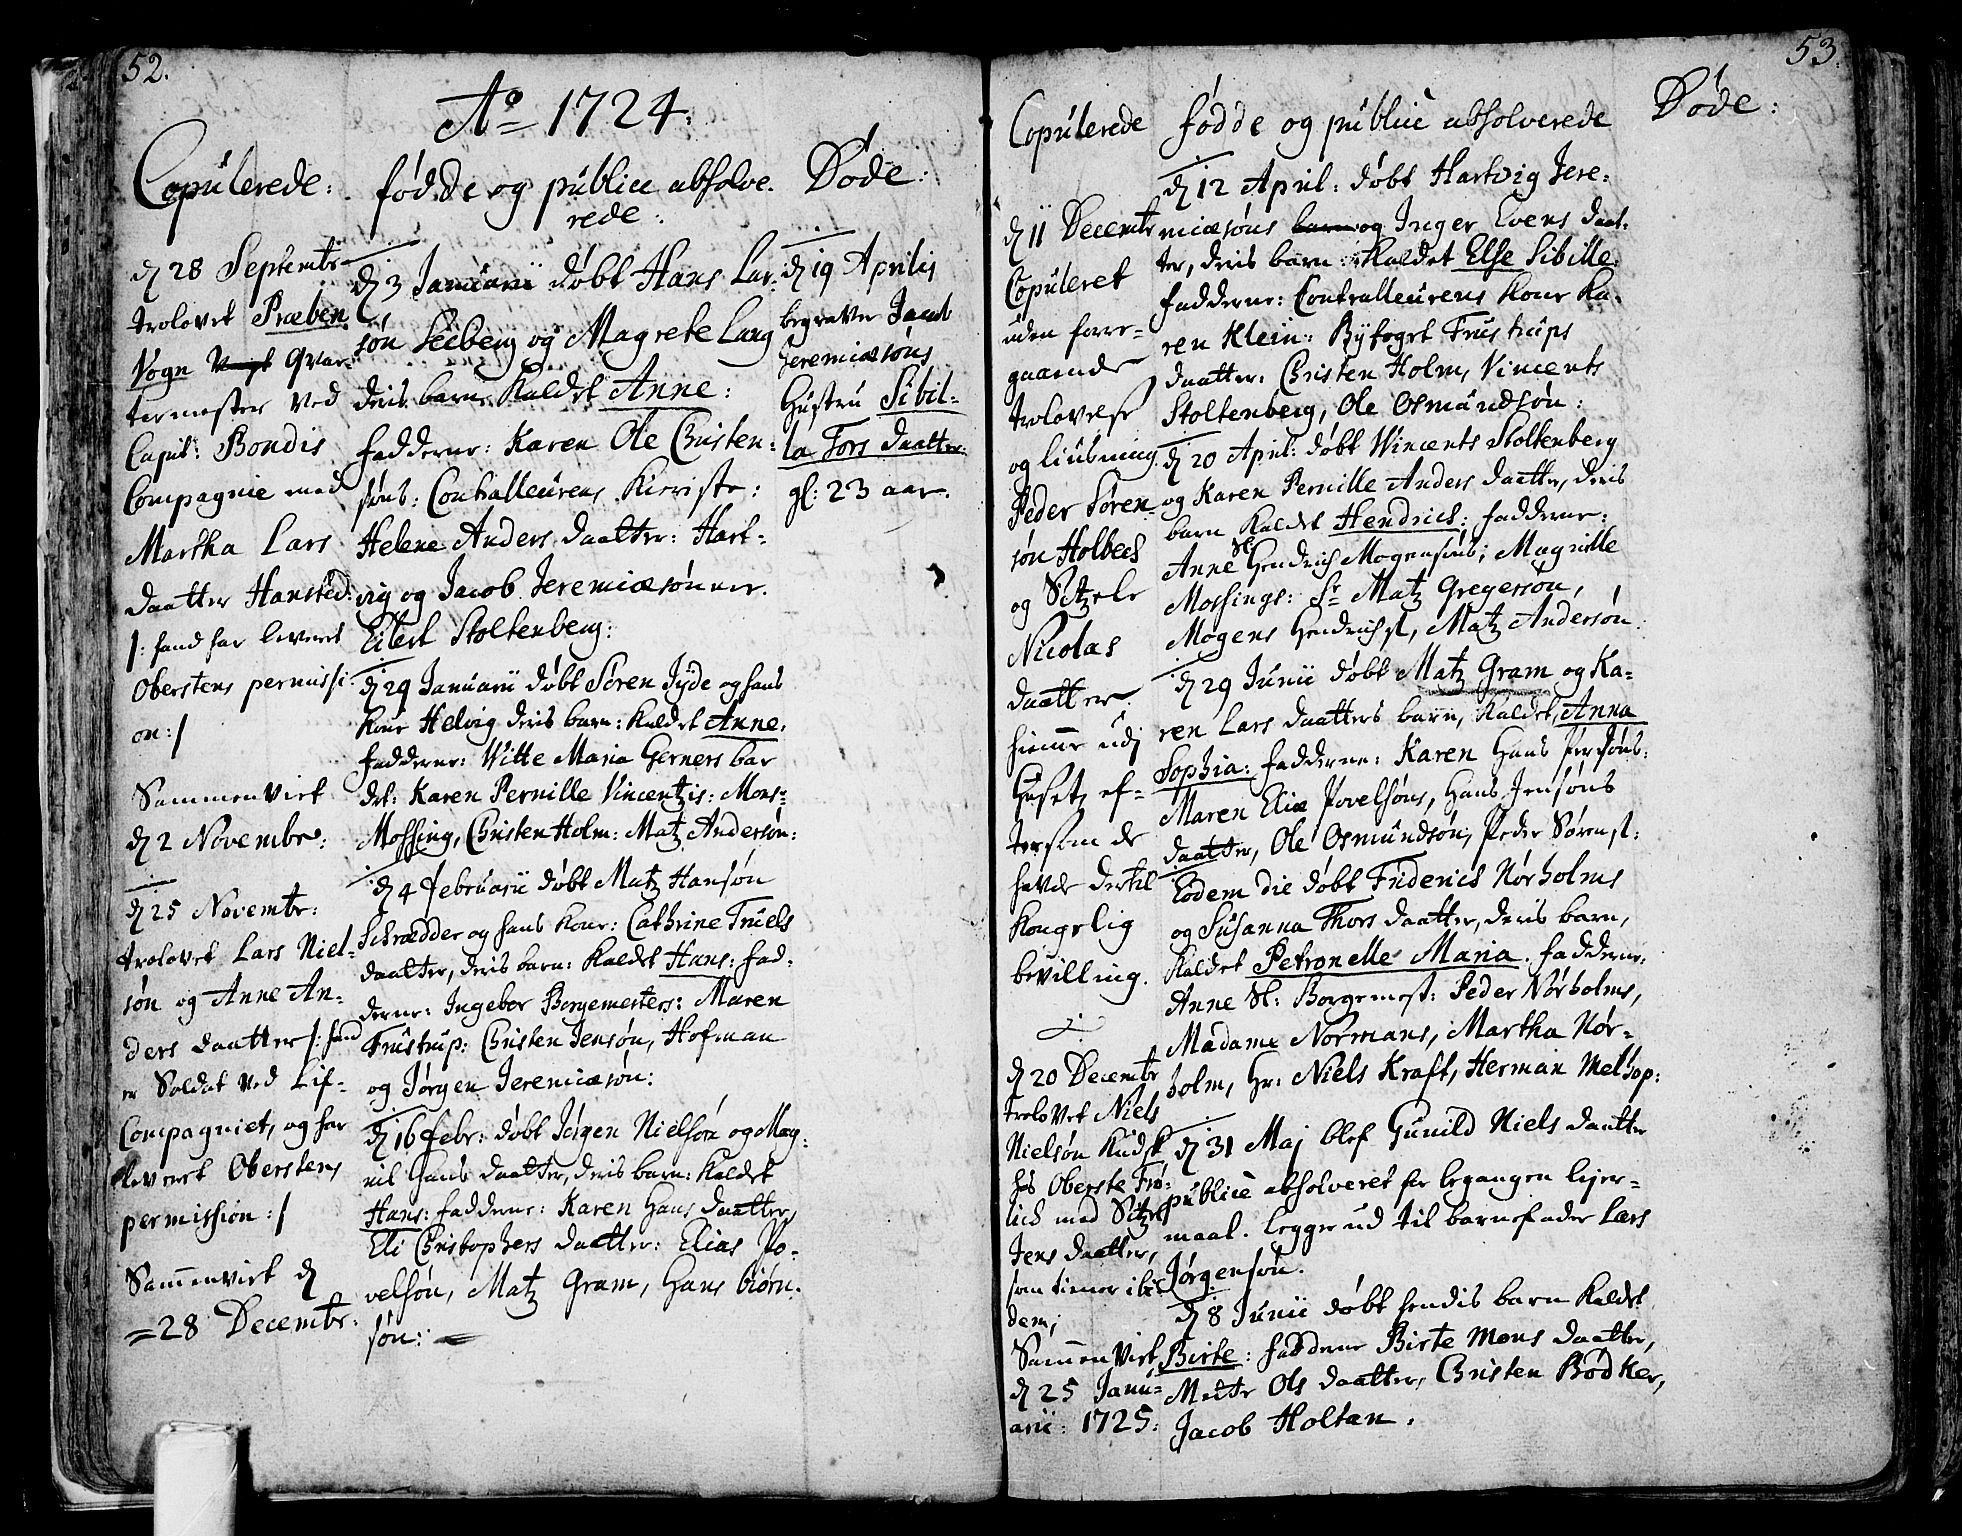 52.
Aº 1724.
Copulerede:
d 28 Septembr
trolovet Præben
Vogn Qvar-
termester ved
Capit: Bondis
Compagnie med
Martha Lars
daatter Hansted:
/: hand har leveret
Oberstens permissi-
on :/
Sammenviet
d 2 Novembr:
d 25 Novembr:
trolovet Lars Niel-
søn og Anne An-
ders daatter /: hand
er Soldat ved Lif-
Compagniet, og har
leveret Oberstens
permission :/
Sammenviet d
=28 Decembr.
fødde og publice absolve-
rede:
d 3 Januarii døbt Hans Lar-
søn Seeberg og Magrete Lang
deris barn Kaldet Anne:
fadderne: Karen Ole Christen-
søns: Contralleurens Kieriste:
Helene Anders daatter: Hart-
vig og Jacob Jeremiæsønner.
Eilert Stoltenberg:
d 29 Januarii døbt Sören Jyde og hans
Kone Helvig deris barn: kaldet Anne.
fadderne: Witte Maria Gerners bar
det: Karen Pernille Vincentzis: Mons:
Mossing, Christen Holm: Matz Andersøn:
d 4 Februarii døbt Matz Hansøn
Schrædder og hans Kone: Cathrine Truels
daatter, deris barn: Kaldet Hans: fad-
derne: Ingebor Borgemesters: Maren
Frustrup: Christen Jensøn, Hofman
og Jørgen Jeremiæsøn:
d 16 Febr: døbt Jörgen Nielsøn og Mag-
nil Hans daatter, deris barn: Kaldet
Hans: fadderne: Karen Hans daatter,
Eli Christophers daatter: Elias Po-
velsøn, Matz Gram, Hans Biörn-
søn:
Døde:
d 19 Aprilis
begravet Jacob
Jeremiæsøns
Hustru Sibil-
la Tors daatter
gl: 23 aar.
53.
Copulerede
d 11 Decembr
Copuleret
uden forre-
gaaende
trolovelse
og liusning
Peder Sören-
søn Holbech
og Sitzele
Nicolas
daatter
hiemme udj
Huset, ef-
tersom de
hafde dertil
Kongelig
bevilling.
d 20 Decembr
trolovet Niels
Nielsøn Kudsk
hos Oberste Frø-
lich med Sitzele
Jens daatter,
som tiener ibi-
dem;
Sammenviet
d 25 Janu-
arii: 1725.
fødde og publice absolverede
d 12 April: døbt Hartvig Jere-
miæsøns barn og Inger Evens daat-
ter, deris barn: Kaldet Else Sibille.
fadderne: Contralleurens Kone Ka-
ren Klein: Byfoget Frustrups
daatter: Christen Holm, Vincents
Stoltenberg, Ole Osmundsøn:
d 20 April: døbt Wincents Stoltenberg
og Karen Pernille Anders daatter, deris
barn Kaldet Hendrich: fadderne:
Anne Sl Hendrich Mogensøns; Magrille
Mossings: Sr Matz Gregersøn,
Mogens Hendrichs:, Matz Andersøn.
d 29 Junii døbt Matz Gram og Ka-
ren Lars daatters barn, Kaldet, Anna
Sophia: fadderne: Karen Hans Persøns:
Maren Eliæ Povelsøns, Hans Jensøns
daatter, Ole Osmundsøn, Peder Sørens:
Eodem die døbt Friderich Nørholms
og Susanna Thors daatter, deris barn,
Kaldet Petronelle Maria. fadderne:
Anne Sl: Borgemest: Peder Nørholms,
Madame Normans, Martha Nør-
holm, Hr: Niels Kraft, Herman Melsop:
d 31 Maj blef Gunild Niels daatter
publice absolveret for begangen lejer-
maal. Legger ud til barnefader Lars
Jørgensøn.
d 8 Junii døbt hendis barn Kaldet
Birte: fadderne Birte Mons daatter,
Mette Ols daatter, Christen Bødker,
Jacob Holtan.
Døde: